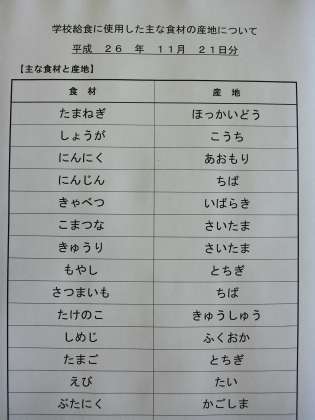 学校給食に使用した主な食材の産地について
平成 26 年 11月 21日分
【主な食材と産地】
食 材 産 地
たまねぎ ほっかいどう
しょうが こうち
にんにく あおもり
にんじん ちば
きゃべつ いばらき
こまつな さいたま
きゅうり さいたま
もやし とちぎ
さつまいも ちば
たけのこ きゅうしゅう
しめじ ふくおか
たまご とちぎ
えび たい
ぶたにく かごしま